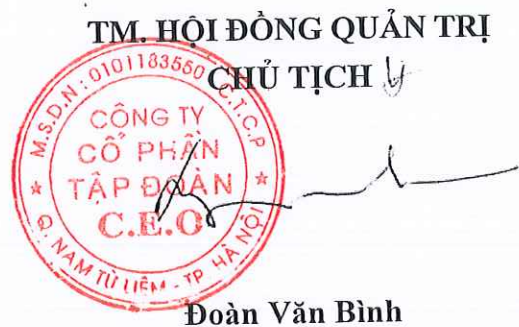 TM. HỘI ĐỒNG QUẢN TRỊ
CHỦ TỊCH
M.S.D.N: 0101183550 - C.T.C.P
CÔNG TY
CỔ PHẦN
TẬP ĐOÀN
C.E.O
Q. NAM TỪ LIÊM - TP. HÀ NỘI
Đoàn Văn Bình